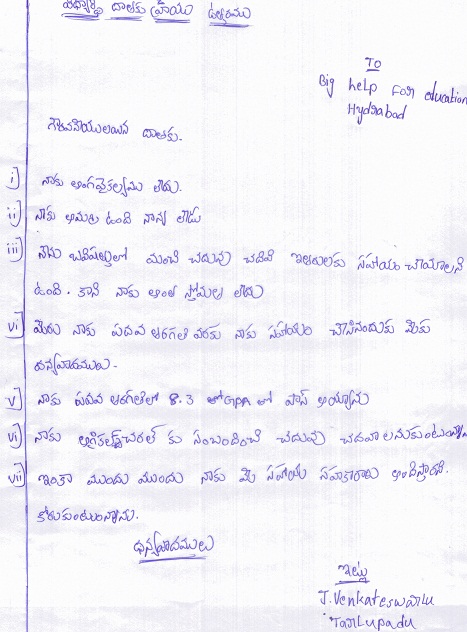 విద్యార్థి దాతకు వ్రాయు ఉత్తరము
To
Big help For education
Hyderabad
గౌరవనీయులయిన దాతకు.
i) నాకు అంగవైకల్యము లేదు.
ii) నాకు అమ్మ ఉంది నాన్న లేడు
iii) నేను భవిష్యత్తులో మంచి చదువు చదివి ఇతరులకు సహాయం చేయాలని
ఉంది. కాని నాకు అంత స్తోమత లేదు
vi) మీరు నాకు పదవ తరగతి వరకు నాకు సహాయం చేసినందుకు మీకు
ధన్యవాదములు.
v) నాకు పదవ తరగతిలో 8.3 తో GPA తో పాస్ అయ్యాను
vi) నాకు అగ్రికల్చరల్ కు సంబందించి చదువు చదవాలనుకుంటున్నా
vii) ఇంకా ముందు ముందు నాకు మీ సహాయ సహకారాలు అందిస్తారని.
కోరుకుంటున్నాను.
ధన్యవాదములు
ఇట్లు
J. Venkateswarlu
Tarlupadu